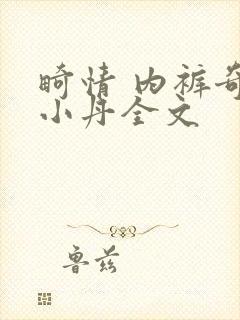 畸情 内裤奇
小丹全文
鲁兹